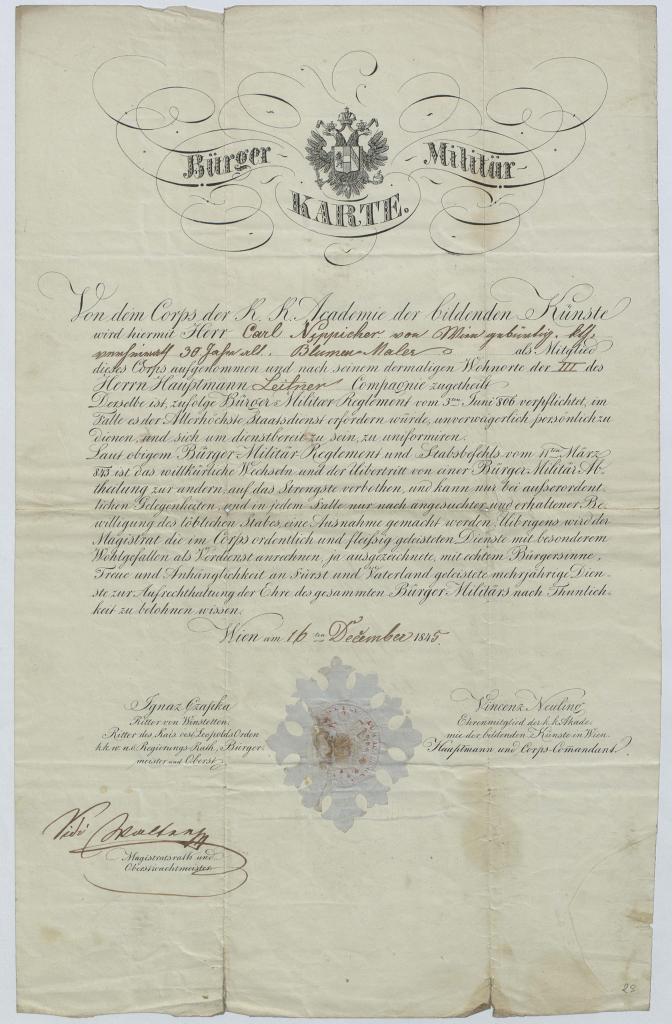 Bürger Militär
KARTE.
Von dem Corps der K. K. Academie der bildenden Künste
wird hiermit Herr Carl Nippicher von Wien gebürtig,
30 Jahr alt. Blumen Maler als Mitglied
dieses Corps aufgenommen und nach seinem dermaligen Wohnorte der III des
Herrn Hauptmann Leitner Compagnie zugetheilt
Derselbe ist, zufolge Bürger-Militär Reglement vom 3ten Juni 806 verpflichtet, im
Falle es der Allerhöchste Staatsdienst erfordern würde, unverwägerlich persönlich zu
dienen, und sich um dienstbereit zu sein, zu uniformiren.
Laut obigem Bürger-Militär-Reglement und Stabsbefehls vom 11ten März
843 ist das willkürliche Wechseln und der Uebertritt von einer Bürger-Militär-Ab-
theilung zur andern, auf das Strengste verbothen, und kann nur bei aufserordent-
lichen Gelegenheiten, und in jedem Falle nur nach angesuchter und erhaltener Be-
willigung des löblichen Stabes, eine Ausnahme gemacht werden. Uibrigens wird der
Magistrat die im Corps ordentlich und fleifsig geleisteten Dienste mit besonderem
Wohlgefallen als Verdienst anrechnen, ja ausgezeichnete, mit echtem Bürgersinne,
Treue und Anhänglichkeit an Fürst und Vaterland geleistete mehrjährige Dien-
ste zur Aufrechthaltung der Ehre des gesammten Bürger-Militärs nach Thunlich-
keit zu belohnen wissen.
Wien am 16ten December 1845.
Ignaz Czapka
Ritter von Winstetten,
Ritter des Kais. oest. Leopolds Orden
k. k. w. n. ö. Regierungs-Rath, Bürger-
meister und Oberst.
Vincenz Neuling
Ehrenmitglied der k. k. Akade-
mie der bildenden Künste in Wien.
Hauptmann und Corps-Comandant.
Vidi
Magistratsrath und
Oberstwachtmeister